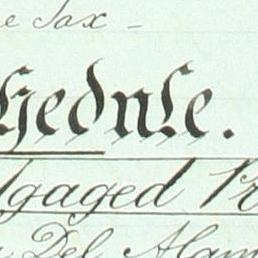 e Tax -
hedule.
tgaged Pr
Del Alam